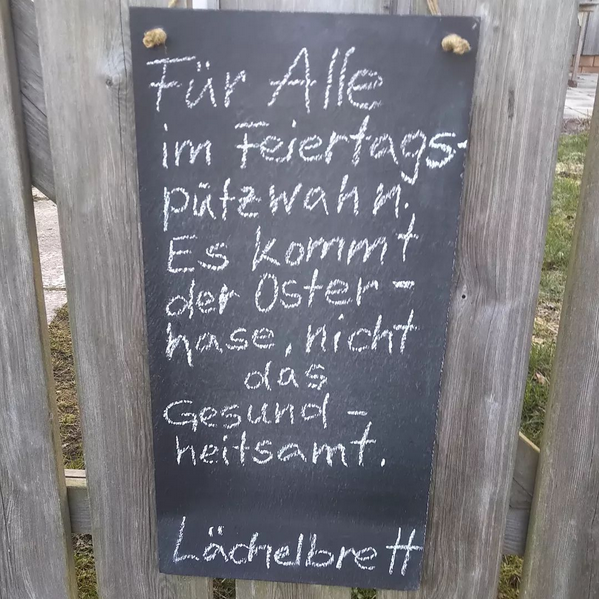 Für Alle
im Feiertags-
putzwahn.
Es kommt
der Oster-
hase, nicht
das
Gesund-
heitsamt.
Lächelbrett